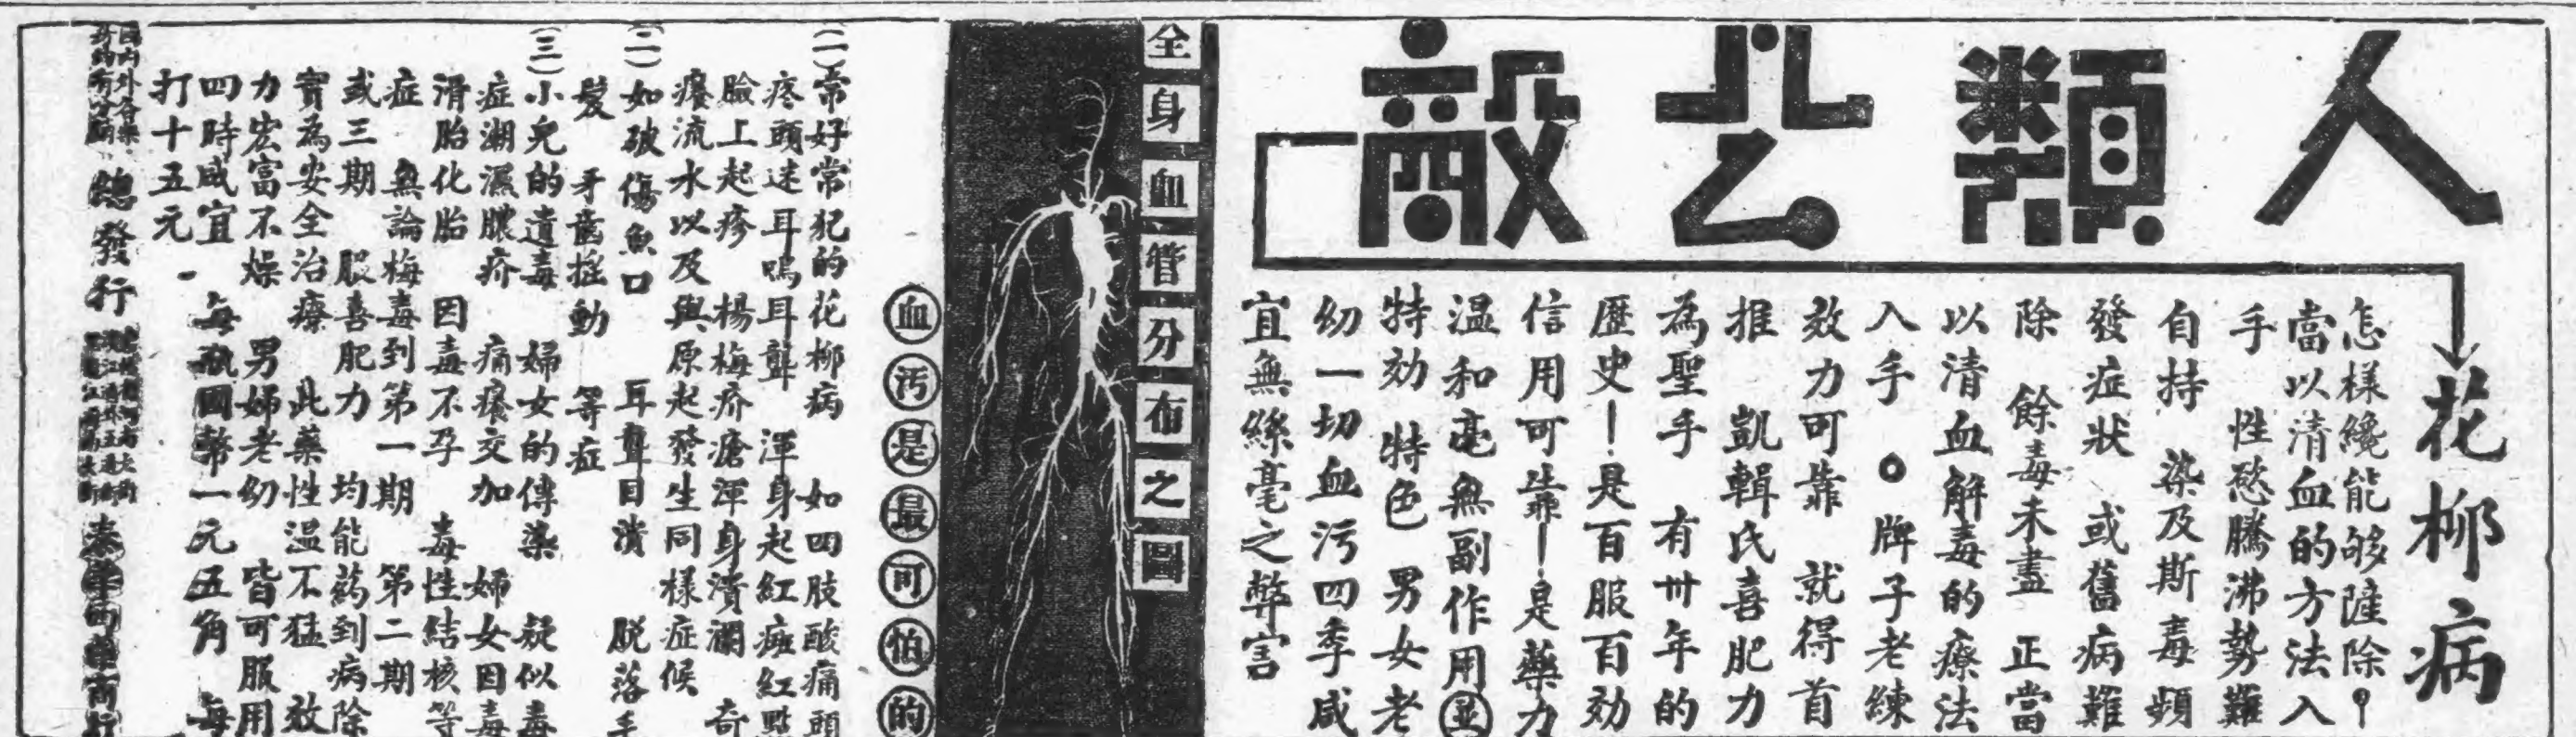 人類公敵
花柳病
怎樣纔能够薩除？
當以清血的方法入
手 性慾騰沸勢難
自持 染及斯毒頻
發症狀 或舊病難
除 餘毒未盡 正當
以清血解毒的療法
入手。牌子老練
效力可靠 就得首
推 凱輯氏喜肥力
為聖手 有卅年的
歷史！是百服百効
信用可靠！是藥力
温和毫無副作用並
特効 特色 男女老
幼一切血污四季咸
宜無絲毫之弊害
全身血管分布之圖
血污是最可怕的
(一)常好常犯的花柳病 如四肢酸痛頭
疼頭迷耳鳴耳聾 渾身起紅癍紅點
臉上起疹 楊梅疥瘡渾身潰瀾 奇
癢流水以及與原起發生同樣症候
(二)如破傷魚口 耳聾目潰 脱落手
髮 牙齒搖動 等症
(三)小兒的遺毒 婦女的傳染 疑似毒
症潮濕膿疥 痛癢交加 婦女因毒
滑胎化胎 因毒不孕 毒性結核等
症 無論梅毒到第一期 第二期
或三期 服喜肥力 均能葯到病除
實為安全治療 此藥性温不猛 效
力宏富不燥 男婦老幼 皆可服用
四時咸宜．每瓶國幣一元五角 每
打十五元．
國内外各藥房均有分銷
總發行
泰華西藥商行